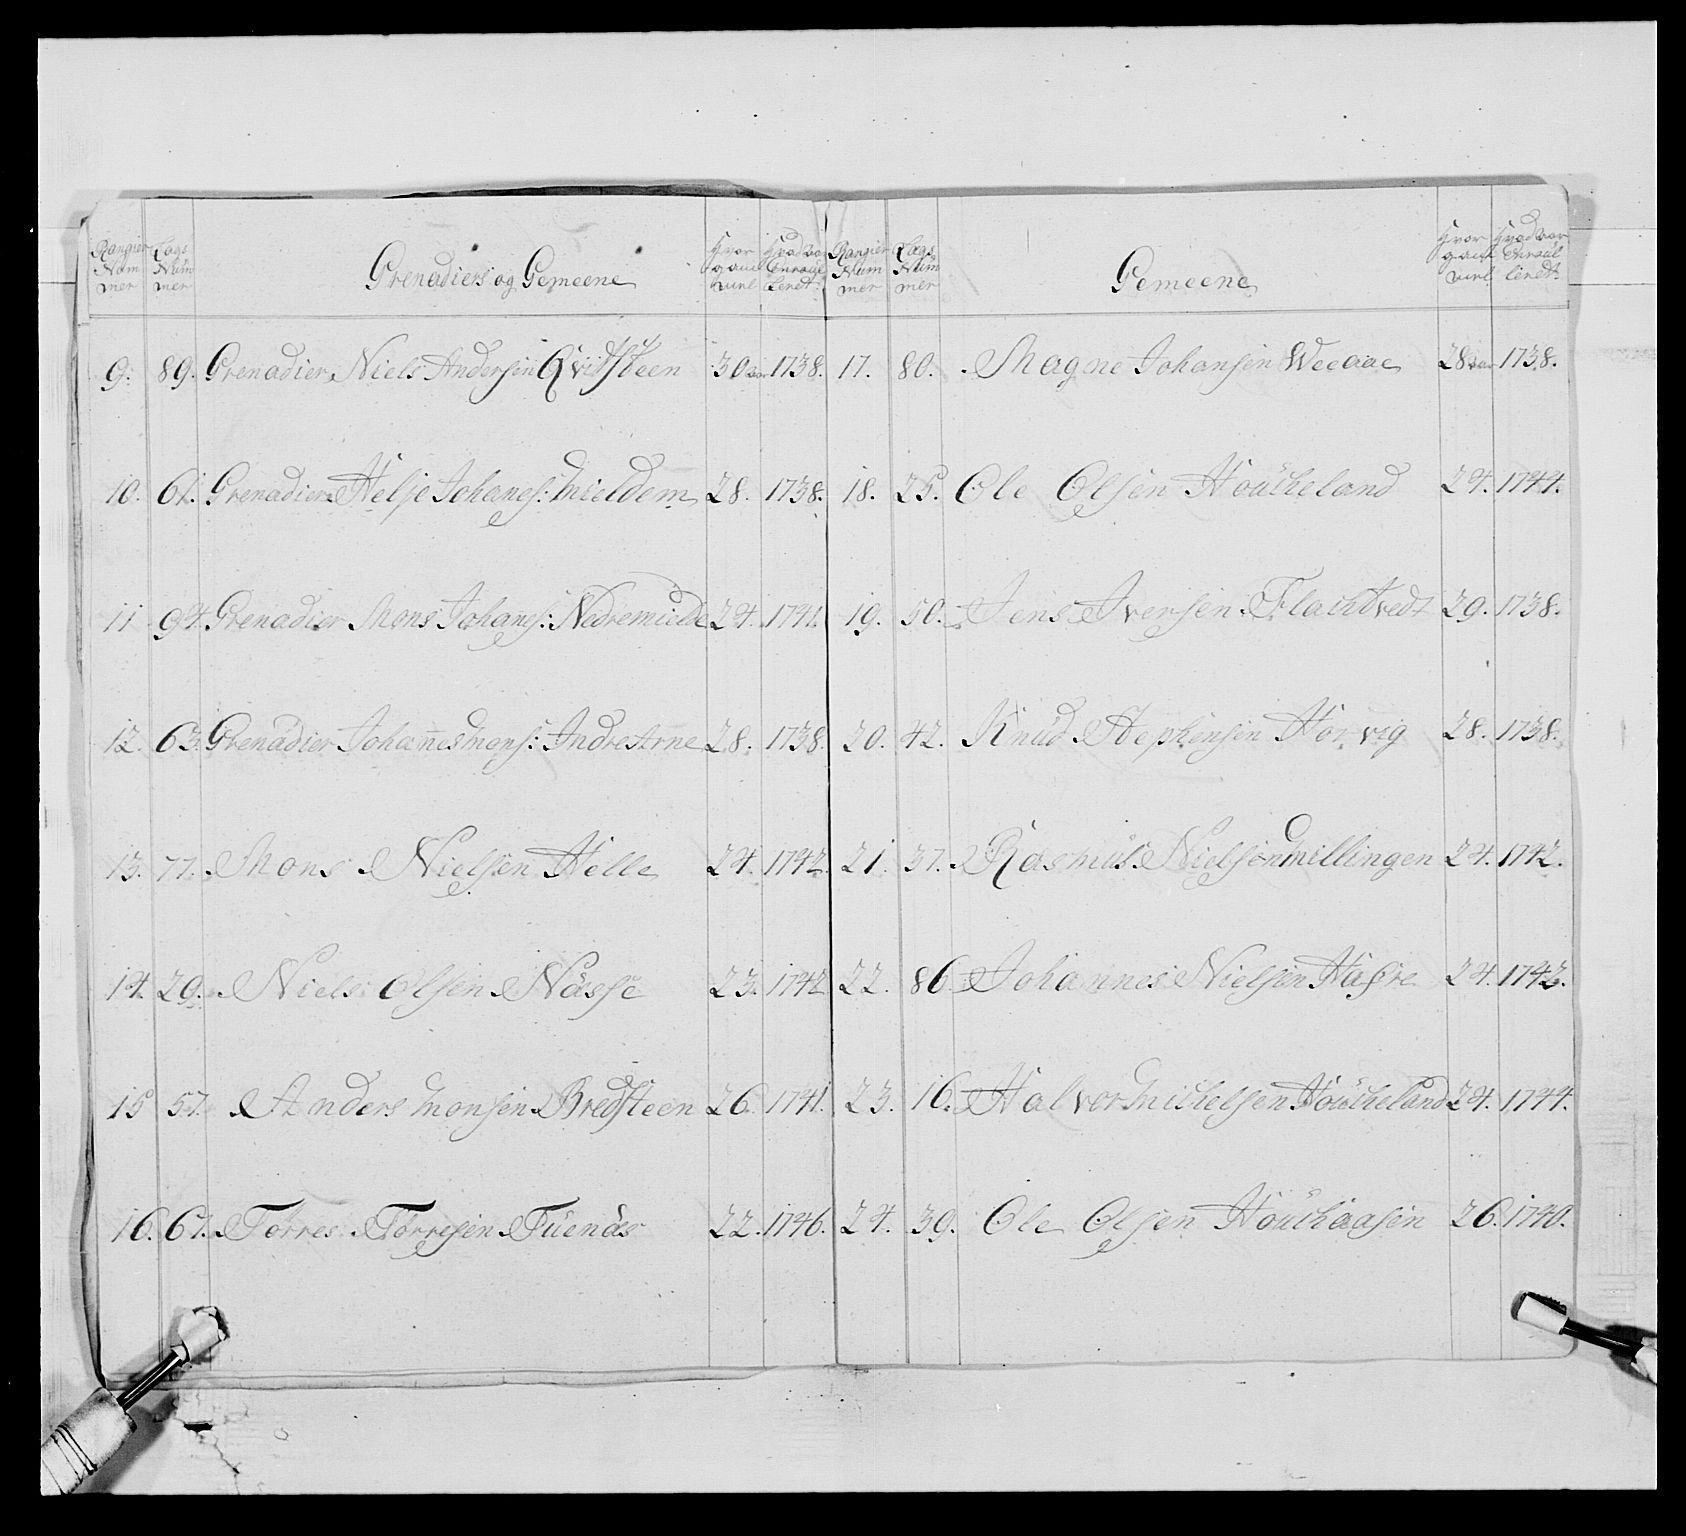 Rangier Nummer Lags Nummer Grenadiers og Gemeene Hvor gamel Hvad aar Enroulleredt
9. 89. Grenadier Niels Andersen Qvitsteen 30 aar 1738.
10. 61. Grenadier Helje Johanes: Mieldem 28. 1738.
11 94. Grenadier Mons Johanes: Nedremielde 24. 1741.
12. 63. Grenadier Johannes Mons: Indre Arne 28. 1738.
13. 77. Mons Nielsen Helle 24. 1742.
14. 29. Niels Olsen Nässe 23. 1742
15 57. Anders Monsen Bredsteen 26. 1741.
16. 67. Torres Torresen Fuenäs 22. 1746.
Rangier Nummer Lags Nummer Gemeene Hvor gamel Hvad aar Enroulleredt
17. 80. Magne Johansen Weeaae 28 aar 1738.
18. 25. Ole Olsen Houcheland 24. 1744.
19. 50. Jens Iversen Flachtvedt 29. 1738.
20. 42. Knud Stephensen Horvig 28. 1738.
21. 37. Rasmus Nielsen Millingen 24. 1742.
22. 86. Johannes Nielsen Hafre 24. 1742.
23. 16. Halvor Michelsen Houcheland 24. 1744.
24. 39. Ole Olsen Houchaasen 26. 1740.